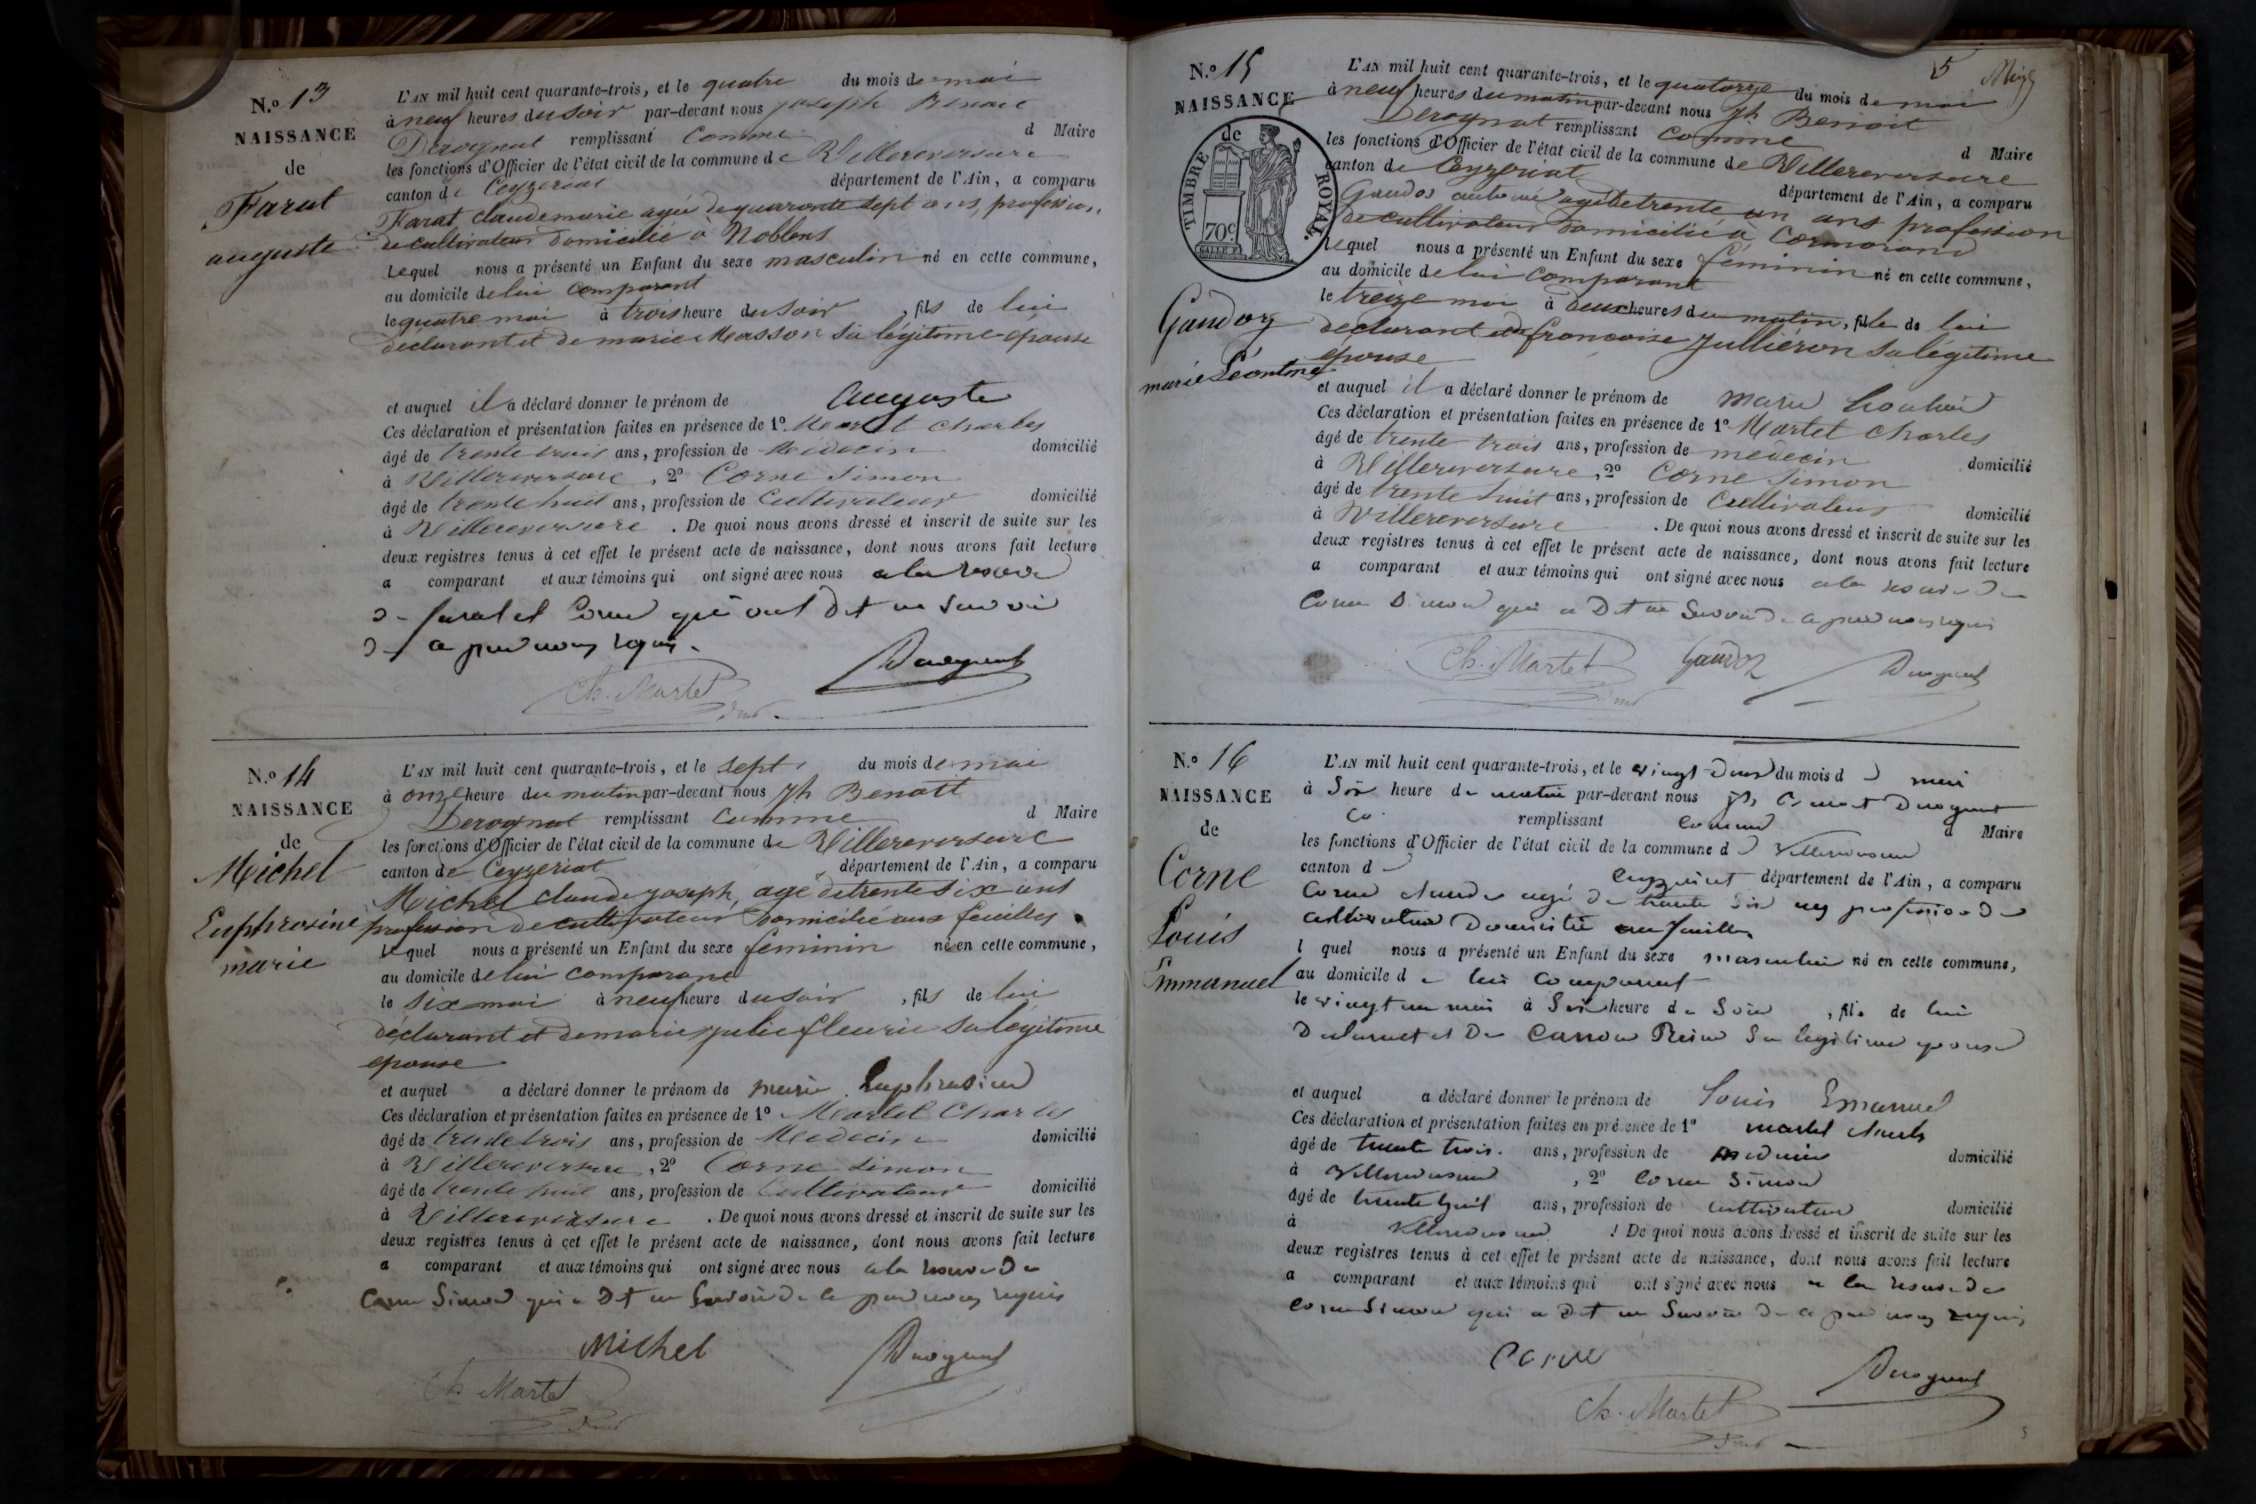 N.º 13
NAISSANCE
de
Farat
auguste
L'AN mil huit cent quarante-trois, et le quatre du mois de mai
à neuf heures du soir par-devant nous joseph Benoit
Derognat remplissant Comme d Maire
les fonctions d'Officier de l'état civil de la commune de Villereversure
canton de Ceyzeriat département de l'Ain, a comparu
Farat claude marie agée de quarante sept ans, profession
de cultivateur domicilié à Noblens
Lequel nous a présenté un Enfant du sexe masculin né en cette commune,
au domicile de lui comparant
le quatre mai à trois heure du soir, fils de lui
déclarant et de marie Masson sa légitime epouse
et auquel il a déclaré donner le prénom de auguste
Ces déclaration et présentation faites en présence de 1º Martet Charles
âgé de trente trois ans, profession de Médecin domicilié
à Villereversure, 2º Corne Simon
âgé de trente huit ans, profession de Cultivateur domicilié
à Villereversure. De quoi nous avons dressé et inscrit de suite sur les
deux registres tenus à cet effet le présent acte de naissance, dont nous avons fait lecture
a comparant et aux témoins qui ont signé avec nous a la reserve
de farat et Corne qui ont dit ne savoir
de ce par nous requis.
Ch. Martet
Derognat
N.º 14
NAISSANCE
de
Michel
Euphrosine
marie
L'AN mil huit cent quarante-trois, et le sept du mois de mai
à onze heure du matin par-devant nous jh Benoit
Derognat remplissant Comme d Maire
les fonctions d'Officier de l'état civil de la commune de Villereversure
canton de Ceyzeriat département de l'Ain, a comparu
Michel claude joseph, agé de trente six ans
profession de cultivateur domicilié aux feuilles
Lequel nous a présenté un Enfant du sexe féminin né en cette commune,
au domicile de lui comparant
le six mai à neuf heure du soir, fils de lui
déclarant et de marie julie fleurie sa légitime
epouse
et auquel a déclaré donner le prénom de marie Euphrasine
Ces déclaration et présentation faites en présence de 1º Martet Charles
âgé de trente trois ans, profession de Médecin domicilié
à Villereversure, 2º Corne Simon
âgé de trente huit ans, profession de Cultivateur domicilié
à Villereversure. De quoi nous avons dressé et inscrit de suite sur les
deux registres tenus à cet effet le présent acte de naissance, dont nous avons fait lecture
a comparant et aux témoins qui ont signé avec nous a la reserve de
Corne Simon qui a dit ne savoir de ce par nous requis
Michel
Ch. Martet
Derognat
5
N.º 15
NAISSANCE
de
TIMBRE ROYAL.
70c
Gaudoz
marie Léontine
L'AN mil huit cent quarante-trois, et le quatorze du mois de mai
à neuf heures du matin par-devant nous jh Benoit
Derognat remplissant Comme d Maire
les fonctions d'Officier de l'état civil de la commune de Villereversure
canton de Ceyzeriat département de l'Ain, a comparu
Gaudoz agé de trente un ans profession
de cultivateur domicilié à Cormorand
Lequel nous a présenté un Enfant du sexe féminin né en cette commune,
au domicile de lui comparant
le treize mai à deux heures du matin, fille de lui
déclarant et de francoise Julliéron sa légitime
epouse
et auquel il a déclaré donner le prénom de marie
Ces déclaration et présentation faites en présence de 1º Martet Charles
âgé de trente trois ans, profession de médecin domicilié
à Villereversure, 2º Corne Simon
âgé de trente huit ans, profession de Cultivateur domicilié
à Villereversure. De quoi nous avons dressé et inscrit de suite sur les
deux registres tenus à cet effet le présent acte de naissance, dont nous avons fait lecture
a comparant et aux témoins qui ont signé avec nous a la reserve de
Corne Simon qui a dit ne savoir de ce par nous requis
Ch. Martet
Gaudoz
Derognat
N.º 16
NAISSANCE
de
Corne
Louis
Emmanuel
L'AN mil huit cent quarante-trois, et le vingt deux du mois de mai
à Six heure du matin par-devant nous jh Benoit Derognat
remplissant comme d Maire
les fonctions d'Officier de l'état civil de la commune de Villereversure
canton de Ceyzeriat département de l'Ain, a comparu
Corne claude agé de trente six ans profession de
cultivateur domicilié aux feuilles
l quel nous a présenté un Enfant du sexe masculin né en cette commune,
au domicile de lui comparant
le vingt un mai à Six heure du Soir, fils de lui
déclarant et de Carron Reine Sa legitime epouse
et auquel a déclaré donner le prénom de Louis Emanuel
Ces déclaration et présentation faites en présence de 1º martet charles
âgé de trente trois ans, profession de medecin domicilié
à Villereversure, 2º Corne Simon
âgé de trente huit ans, profession de cultivateur domicilié
à Villereversure. De quoi nous avons dressé et inscrit de suite sur les
deux registres tenus à cet effet le présent acte de naissance, dont nous avons fait lecture
a comparant et aux témoins qui ont signé avec nous a la reserve de
Corne Simon qui a dit ne Savoir de ce par nous requis
Corne
Ch. Martet
Derognat